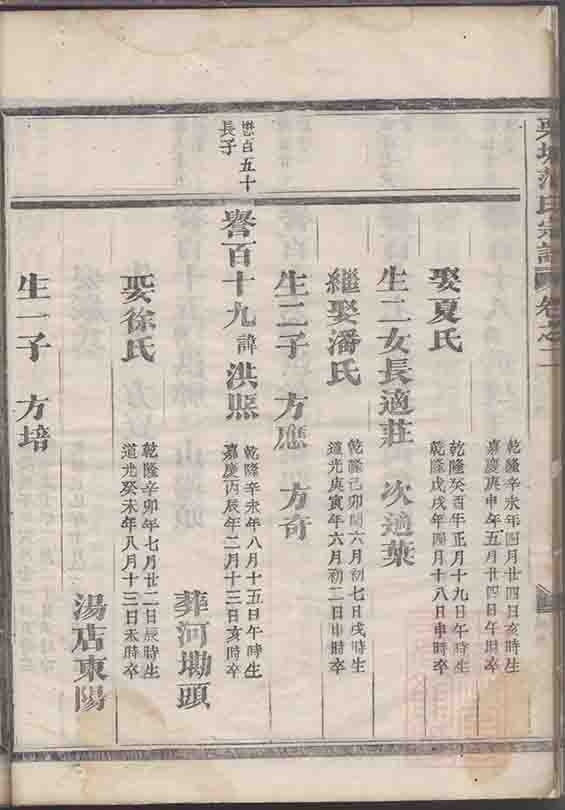 氏宗譜 卷之二
乾隆辛未年四月廿四日亥時生
嘉慶庚申年五月廿四日午時卒
娶夏氏
乾隆癸酉年正月十九日午時生
乾隆戊戌年四月十八日申時卒
生二女長適莊 次適葉
繼娶潘氏
乾隆己卯閏六月初七日戌時生
道光庚寅年六月初二日申時卒
生二子 方應 方奇
懋百五十
長子
譽百十九諱洪照
乾隆辛未年八月十五日午時生
嘉慶丙辰年二月十三日亥時卒
葬河墈頭
娶徐氏
乾隆辛卯年七月廿二日辰時生
道光癸未年八月十三日未時卒
湯店東陽
生一子 方培